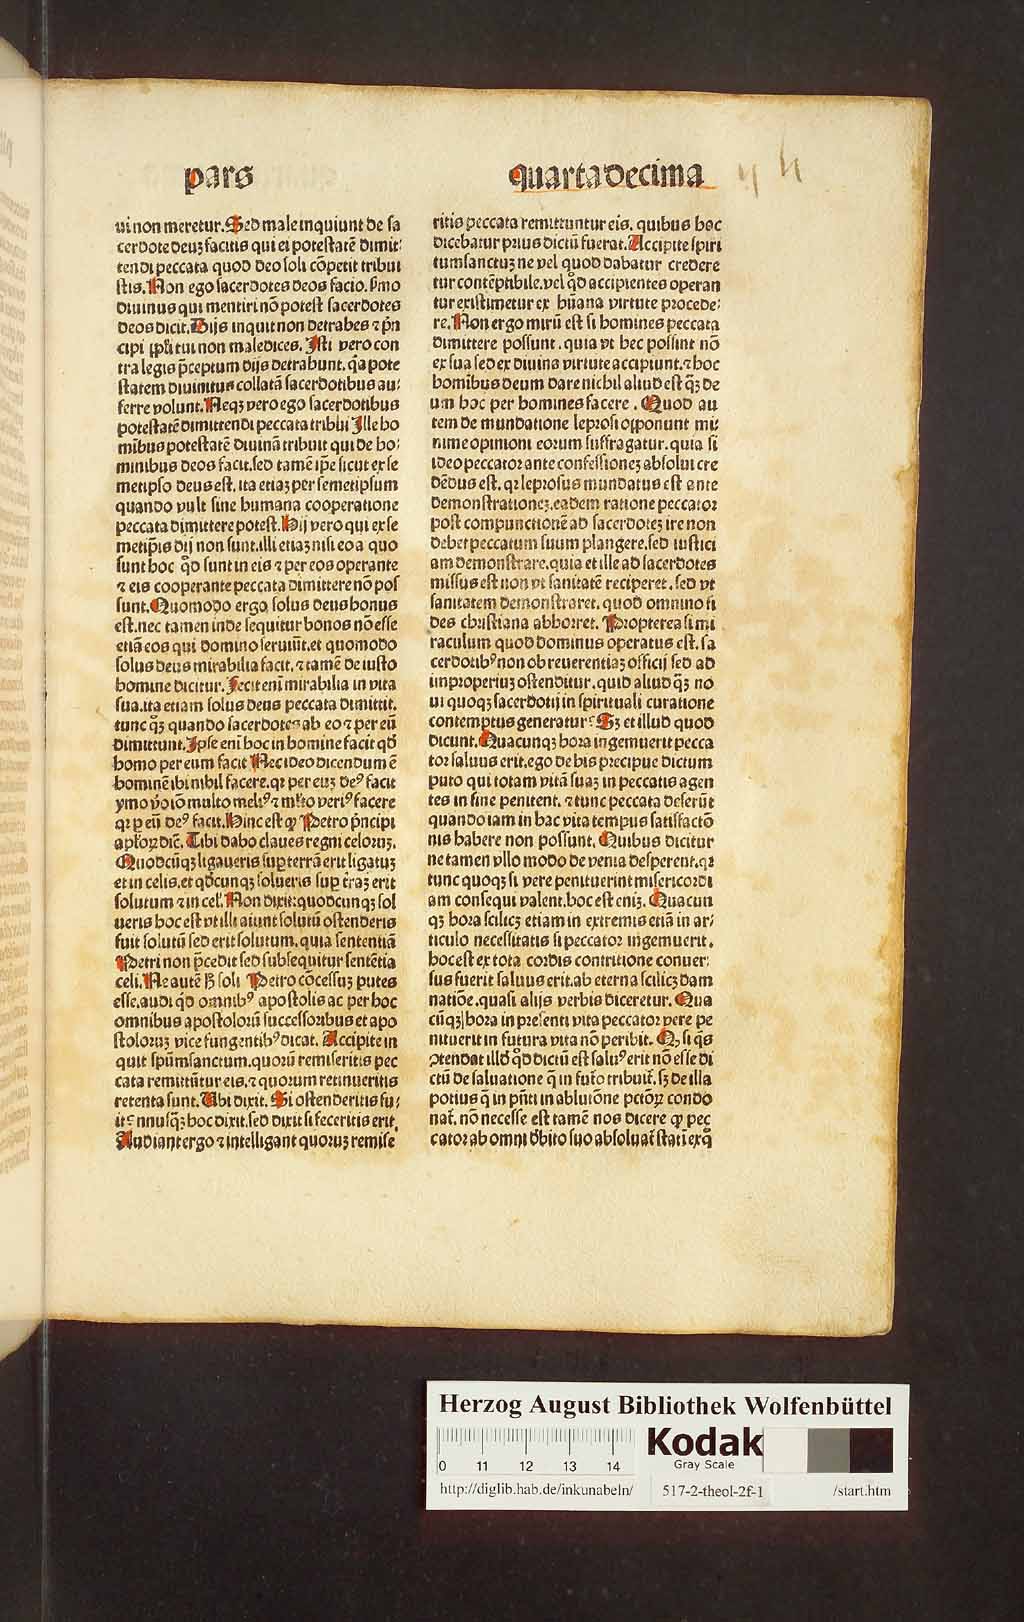 pars quartadecima
ui non meretur. Sed male inquiunt de sa
cerdote deuȝ facitis qui ei potestatē dimit⸗
tendi peccata quod deo soli cōpetit tribui
stis. Non ego sacerdotes deos facio. s̓mo
diuinus qui mentiri nō potest sacerdotes
deos dicit. Dijs inquit non detrabes ⁊ p̄n
cipi ppl̓i tui non maledices. Isti vero con
tra legis p̄ceptum dijs detrahunt. q̄a pote
statem diuinitus collatā sacerdotibus au⸗
ferre volunt. Neqȝ vero ego sacerdotibus
potestatē dimittendi peccata tribui Ille ho
mībus potestatē diuinā tribuit qui de ho⸗
minibus deos facit. sed tamē ip̄e sicut ex se
metipso deus est. ita etiaȝ per semetipsum
quando vult sine humana cooperatione
peccata dimittere potest. Hij vero qui ex se
metip̄is dij non sunt. illi etiaȝ nisi eo a quo
sunt hoc qd̓ sunt in eis ⁊ per eos operante
⁊ eis cooperante peccata dimittere nō pos
sunt. Quomodo ergo solus deus bonus
est. nec tamen inde sequitur bonos nō esse
etiā eos qui domino seruiūt. et quomodo
solus deus mirabilia facit. ⁊ tamē de iusto
homine dicitur. Fecit eni mirabilia in vita
sua. ita etiam solus deus peccata dimittit.
tunc qȝ quando sacerdotes ab eo ⁊ per eū
dimittunt. Ipse eni hoc in homine facit qd̓
homo per eum facit Nec ideo dicendum ē
hominē ibi nihil facere. qr per euȝ deꝰ facit
ymo v̓o iō multo meliꝰ ⁊ ml̓to veriꝰ facere
qr ꝑ eū deꝰ facit. Hinc est ꝙ Petro p̄ncipi
apl̓oꝝ dic̄. Tibi dabo claues regni celoruȝ.
Quodcūqȝ ligaueris suꝑ terrā erit ligatuȝ
et in celis. et qd̓cunqȝ solueris suꝑ t̓raȝ erit
solutum ⁊ in cel̓. Non dixit: quodcunqȝ sol
ueris hoc est vt illi aiunt solutū ostenderis
fuit solutū sed erit solutum. quia sententiā
Petri non p̄cedit sed subsequitur sentētia
celi. Ne autē h̓ soli Petro cōcessuȝ putes
esse. audi qd̓ omnibꝰ apostolis ac per hoc
omnibus apostolorū successoribus et apo
stoloruȝ vice fungentibꝰ dicat. Accipite in
quit sp̄umsanctum. quorū remiseritis pec
cata remittūtur eis. ⁊ quorum retinueritis
retenta sunt. Ubi dixit. Si ostenderitis fu⸗
it: nnusqȝ hoc dixit. sed dixit si feceritis erit.
Audiant ergo ⁊ intelligant quoruȝ remise
ritis peccata remittuntur eis. quibus hoc
dicebatur prius dictū fuerat. Accipite spiri
tumsanctuȝ ne vel quod dabatur credere
tur contēptibile. vel qd̓ accipientes operan
tur existimetur ex hūana virtute procede⸗
re. Non ergo mirū est si homines peccata
dimittere possunt. quia vt hec possint nō
ex sua sed ex diuina virtute accipiunt. ⁊ hoc
homībus deum dare nichil aliud est qȝ de
um hoc per homines facere. Quod au
tem de mundatione leprosi opponunt mi⸗
nime opinioni eorum suffragatur. quia si
ideo peccator ante confessioneȝ absolui cre
dēdus est. qr leprosus mundatus est ante
demonstrationeȝ. eadem ratione peccator
post compunctionē ad sacerdoteȝ ire non
debet peccatum suum plangere. sed iustici
am demonstrare. quia et ille ad sacerdotes
missus est non vt sanitatē reciperet. sed vt
sanitatem demonstraret. quod omnino fi
des christiana abhorret. Propterea si mi
raculum quod dominus operatus est. sa
cerdotibꝰ non ob reuerentiaȝ officij sed ad
improperiuȝ ostenditur. quid aliud qȝ no
ui quoqȝ sacerdotij in spirituali curatione
contemptus generatur: Sȝ et illud quod
dicunt. Quacunqȝ hora ingemuerit pecca
tor saluus erit. ego de his precipue dictum
puto qui totam vitā suaȝ in peccatis agen
tes in fine penitent. ⁊ tunc peccata deserūt
quando iam in hac vita tempus satisfactō
nis habere non possunt. Quibus dicitur
ne tamen vllo modo de venia desperent. qr
tunc quoqȝ si vere penituerint misericordi
am consequi valent. hoc est eniȝ. Quacun
qȝ hora scilicȝ etiam in extremis etiā in ar⸗
ticulo necessitatis si peccator ingemuerit.
hoc est ex tota cordis contritione conuer⸗
sus fuerit saluus erit. ab eterna scilicȝ dam
natiōe. quasi alijs verbis diceretur. Qua
cūqȝ hora in presenti vita peccator vere pe
nituerit in futura vita nō peribit. Qȝ si q̓s
ꝓtendat illd̓ qd̓ dictū est saluꝰ erit nō esse di
ctū de saluatione q̄ in fut̓o tribuit̓. sȝ de illa
potius q̄ in pn̄ti in ablutōne pctōꝝ condo
nat̓. nō necesse est tamē nos dicere ꝙ pec
cator ab omni d̓bito suo absoluat̓ statī ex q̄
Herzog August Bibliothek Wolfenbüttel
0 11 12 13 14
Kodak
Gray Scale
http://diglib.hab.de/inkunabeln/ 517-2-theol-2f-1 /start.htm